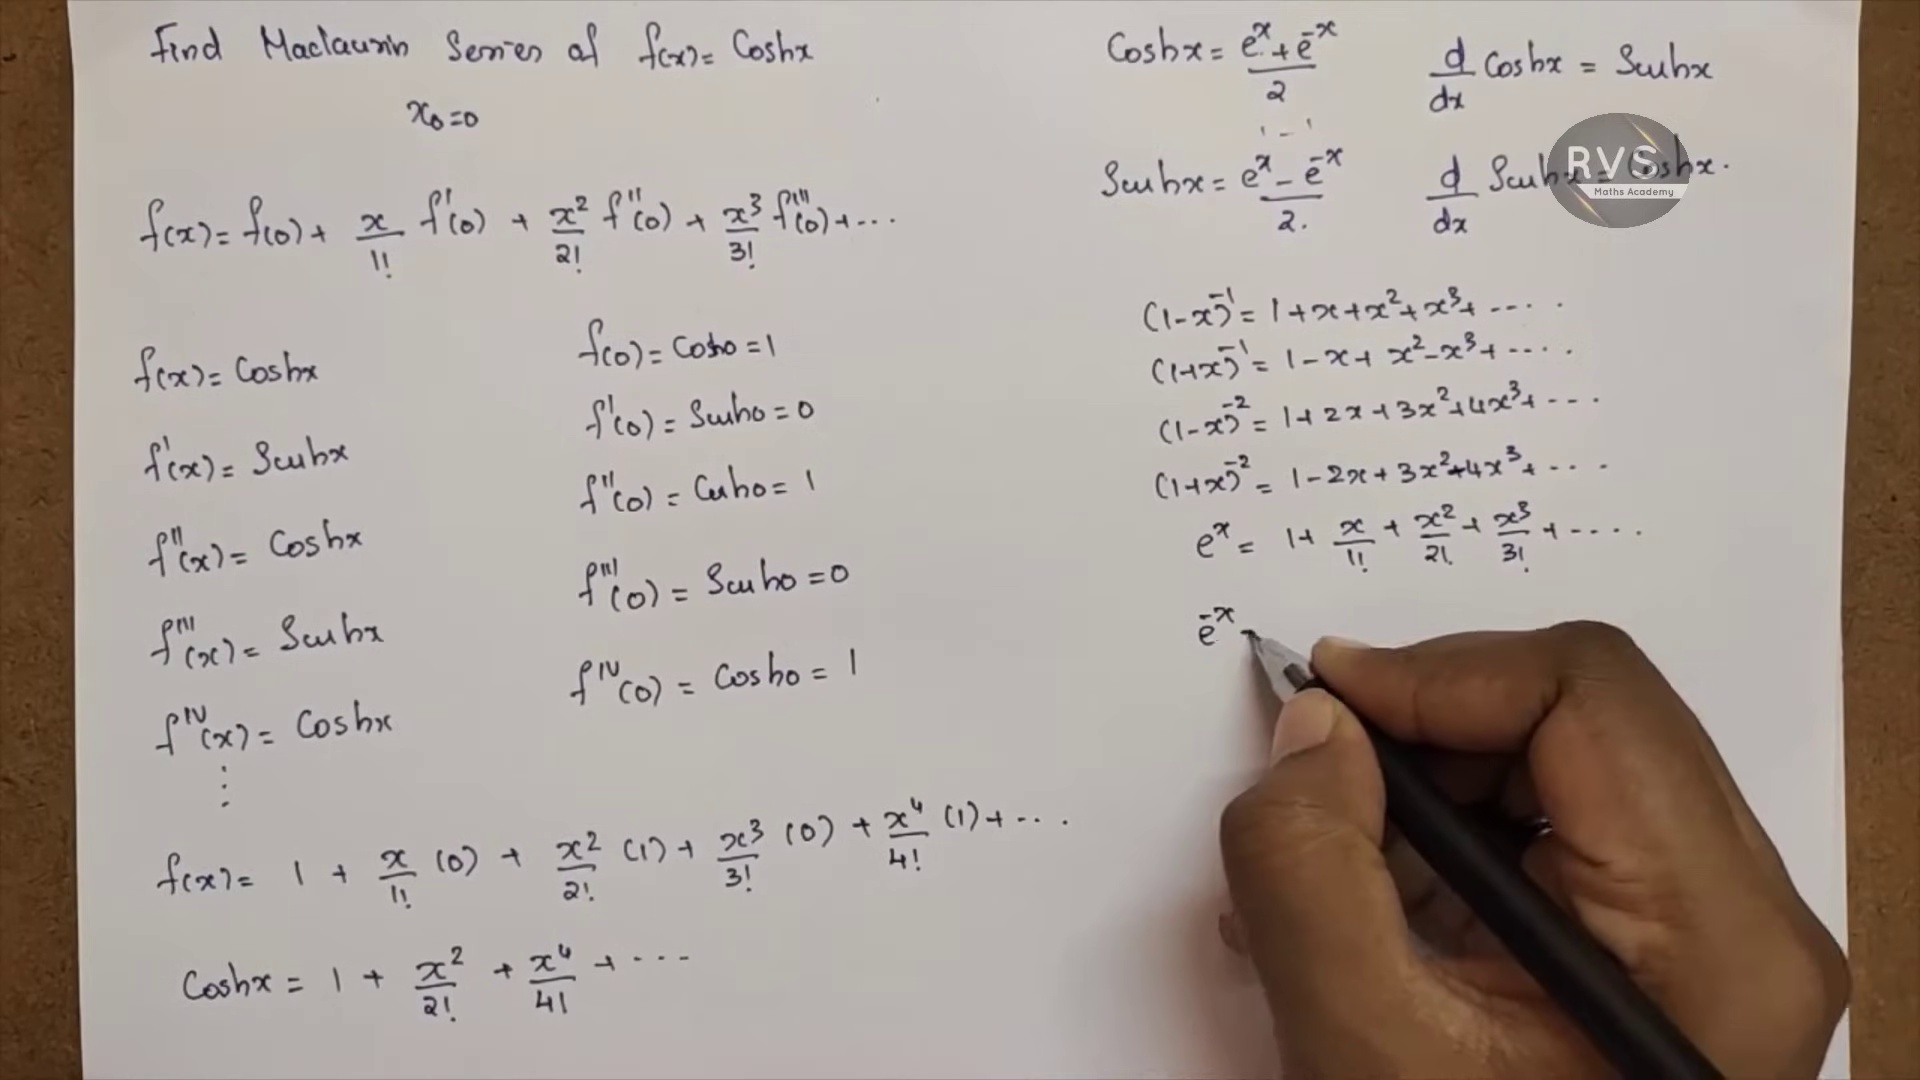 Find Maclaurin Series of f(x) = Coshx
x₀ = 0
f(x) = f(0) + x/1! f'(0) + x²/2! f''(0) + x³/3! f'''(0) + ...
f(x) = Coshx
f'(x) = Sinhx
f''(x) = Coshx
f'''(x) = Sinhx
f^IV(x) = Coshx
⋮
f(0) = Cosh0 = 1
f'(0) = Sinh0 = 0
f''(0) = Cosh0 = 1
f'''(0) = Sinh0 = 0
f^IV(0) = Cosh0 = 1
f(x) = 1 + x/1! (0) + x²/2! (1) + x³/3! (0) + x⁴/4! (1) + ...
Coshx = 1 + x²/2! + x⁴/4! + ...
Coshx = (e^x + e^-x)/2
d/dx Coshx = Sinhx
Sinhx = (e^x - e^-x)/2.
d/dx Sinhx = Coshx.
RVS
Maths Academy
(1-x)^-1 = 1 + x + x² + x³ + ....
(1+x)^-1 = 1 - x + x² - x³ + ....
(1-x)^-2 = 1 + 2x + 3x² + 4x³ + ...
(1+x)^-2 = 1 - 2x + 3x² - 4x³ + ...
e^x = 1 + x/1! + x²/2! + x³/3! + ....
e^-x -